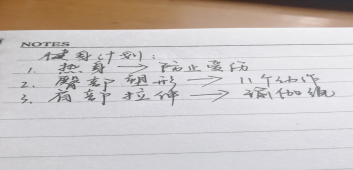 NOTES
健身计划：
1. 热身 → 防止受伤
2. 臀部塑形 → 11个动作
3. 肩部拉伸 → 瑜伽绳